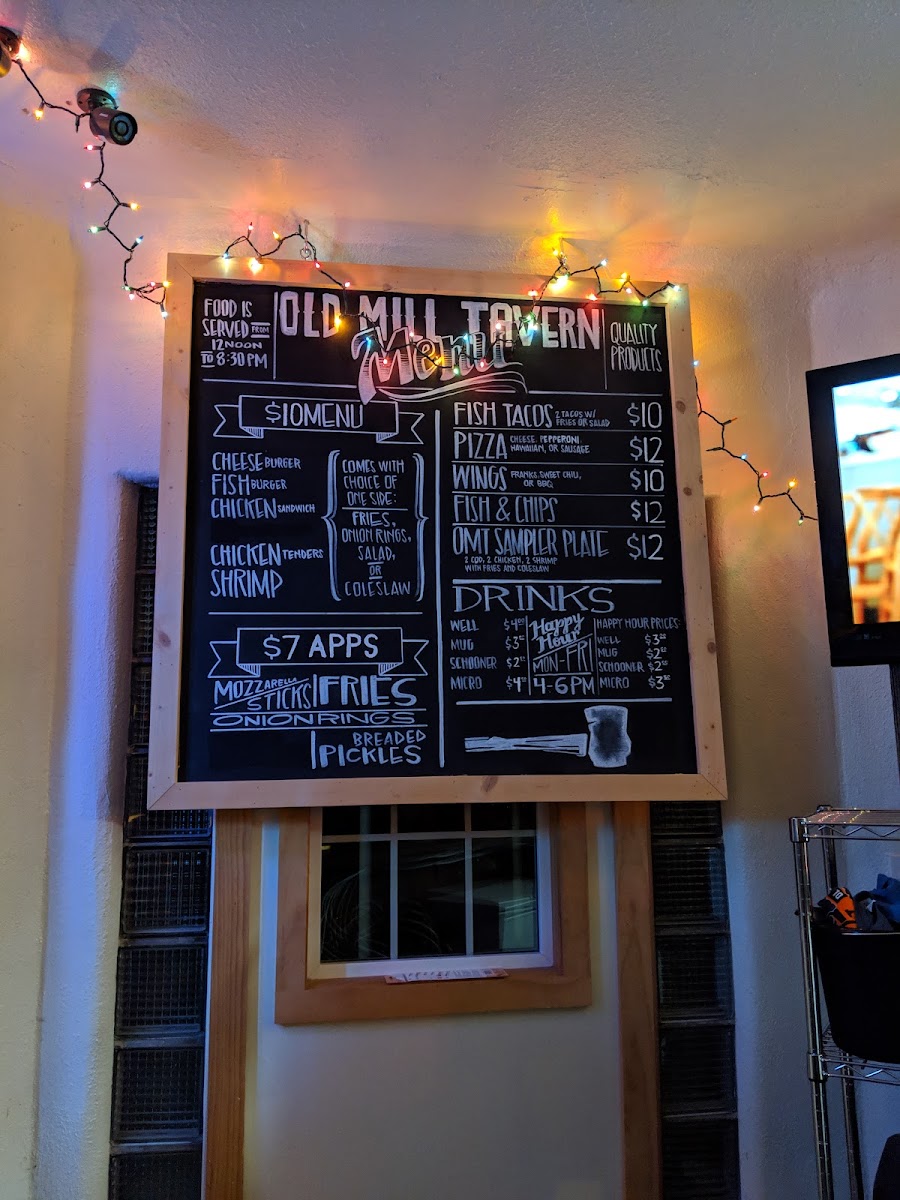 FOOD IS
SERVED FROM
12NOON
TO 8:30PM
OLD MILL TAVERN
Menu
QUALITY
PRODUCTS
$10MENU
CHEESEBURGER
FISHBURGER
CHICKEN SANDWICH
CHICKEN TENDERS
SHRIMP
COMES WITH
CHOICE OF
ONE SIDE:
FRIES,
ONION RINGS,
SALAD,
OR
COLESLAW
$7 APPS
MOZZARELLA
STICKS
FRIES
ONION RINGS
BREADED
PICKLES
FISH TACOS 2 TACOS W/ FRIES OR SALAD $10
PIZZA CHEESE, PEPPERONI, HAWAIIAN, OR SAUSAGE $12
WINGS FRANKS, SWEET CHILI, OR BBQ $10
FISH & CHIPS $12
OMT SAMPLER PLATE $12
2 COD, 2 CHICKEN, 2 SHRIMP
WITH FRIES AND COLESLAW
DRINKS
WELL
MUG
SCHOONER
MICRO
Happy
Hour
MON-FRI
4-6PM
HAPPY HOUR PRICES:
WELL
MUG
SCHOONER
MICRO